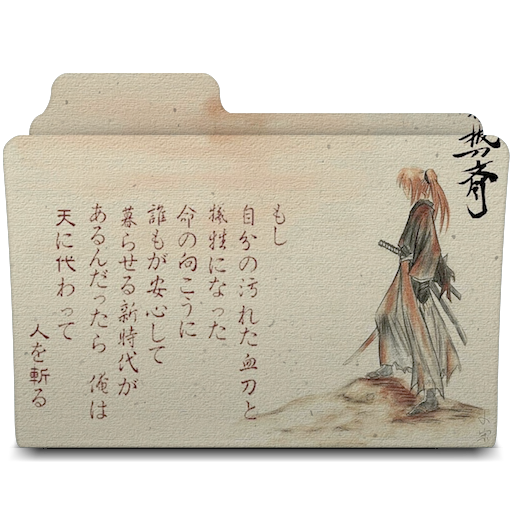 もし
自分の汚れた血刀と
犠牲になった
命の向こうに
誰もが安心して
暮らせる新時代が
あるんだったら 俺は
天に代わって
人を斬る
抜刀斎